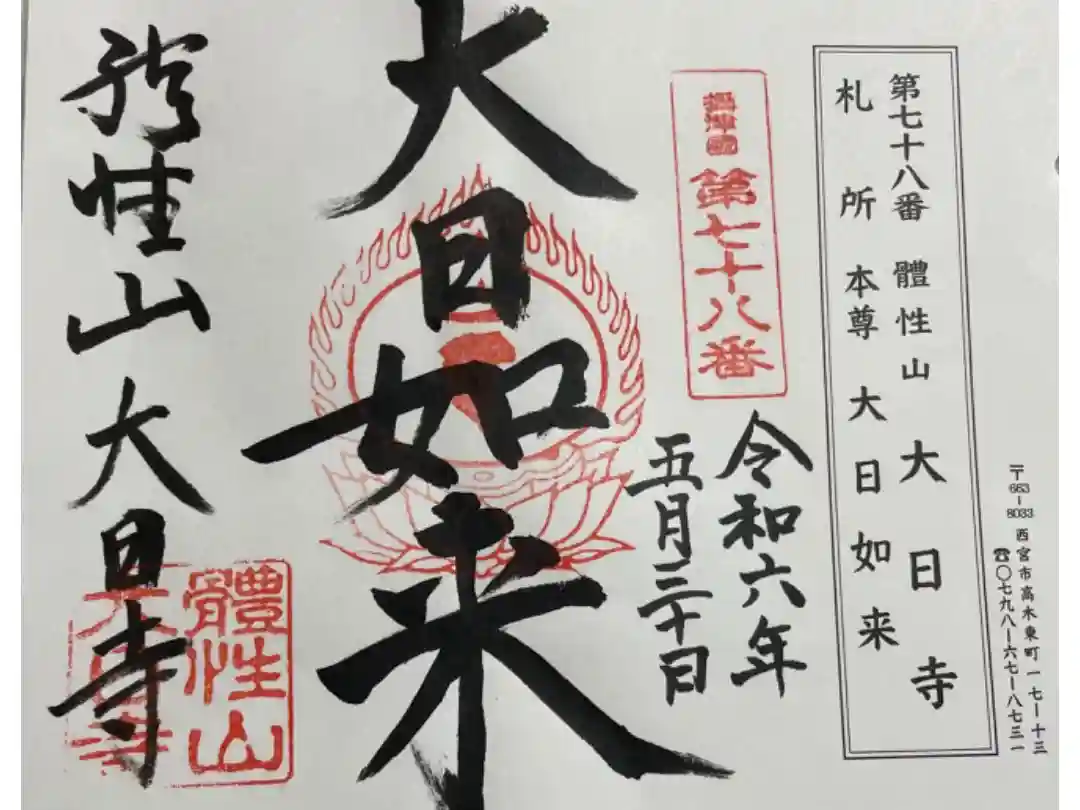 〒663-8033 西宮市高木東町一七ー十三
☎〇七九八ー六七ー八七三一
第七十八番 體性山 大日寺
札所本尊 大日如来
攝津國 第七十八番
令和六年
五月三十日
大日如来
體性山 大日寺
體性山
大日寺